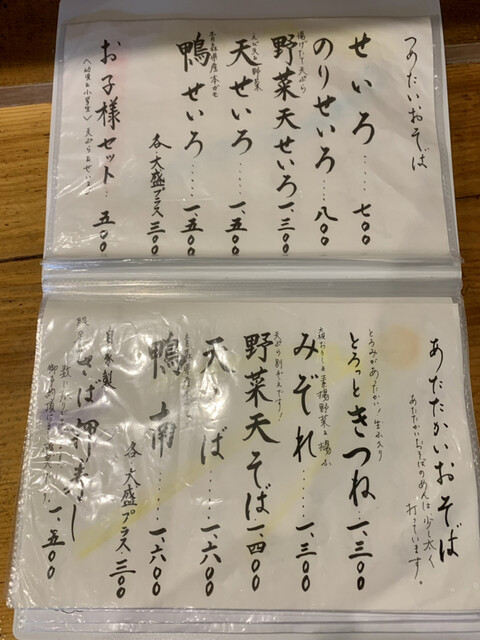 つめたいおそば
せいろ.....七〇〇
のりせいろ...八〇〇
揚げたて天ぷら
野菜天せいろ一、三〇〇
えび天と野菜
天せいろ.....一、五〇〇
青森県産本ガモ
鴨せいろ.....一、五〇〇
各・大盛プラス 三〇〇
お子様セット...五〇〇
〈幼児と小学生〉 天ぷらとせいろ
あたたかいおそば
あたたかいおそばのめんは少し太く
打っています。
とろみがあったかい! 生姜入り
とろっときつね...一、三〇〇
みぞれ......一、三〇〇
天ぷら別がえです!
野菜天そば一、四〇〇
天 ば......一、六〇〇
鴨南......一、六〇〇
各・大盛プラス 三〇〇
自家製
さば押 し
一、五〇〇